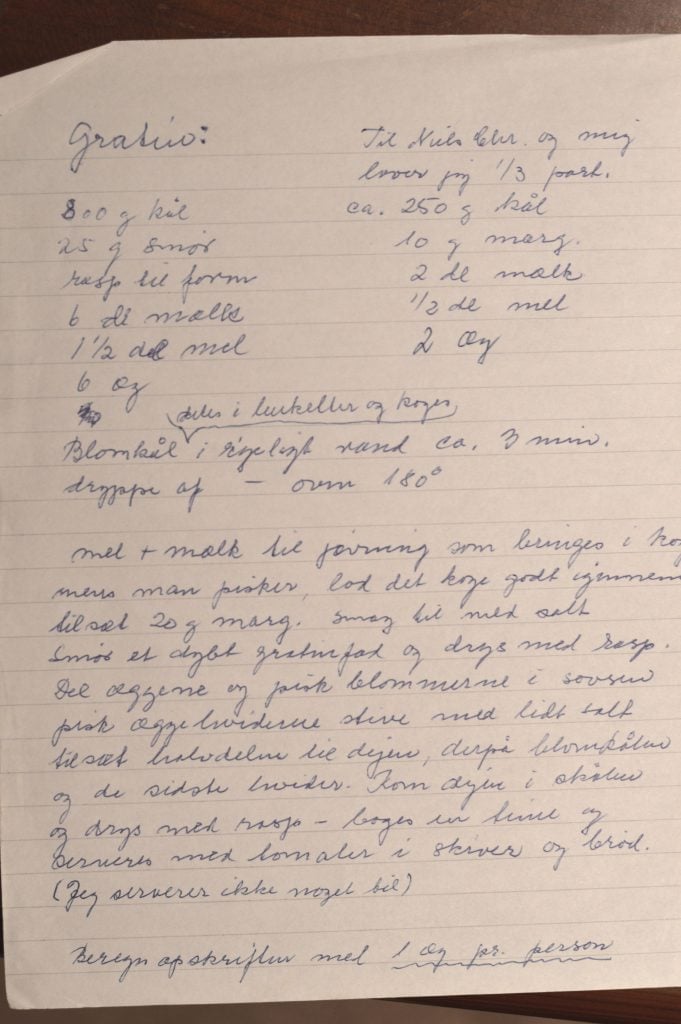 Gratin:
800 g kål
25 g smør
rasp til form
6 dl mælk
1 1/2 del mel
6 æg
Til Niels Chr. og mig
laver jeg 1/3 part.
ca. 250 g kål
10 g marg.
2 dl mælk
1/2 dl mel
2 æg
deles i buketter og koges
Blomkål i rigeligt vand ca. 3 min.
dryppe af - ovn 180°
mel + mælk til jævning som bringes i kog
mens man pisker, lad det koge godt igennem
tilsæt 20 g marg. smag til med salt
Smør et dybt gratinfad og drys med rasp.
Del æggene og pisk blommerne i sovsen
pisk æggehviderne stive med lidt salt
tilsæt halvdelen til dejen, derpå blomkålen
og de sidste hvider. Kom dejen i skålen
og drys med rasp - bages en time og
serveres med tomater i skiver og brød.
(Jeg serverer ikke noget til)
Beregn opskriften med 1 æg pr. person